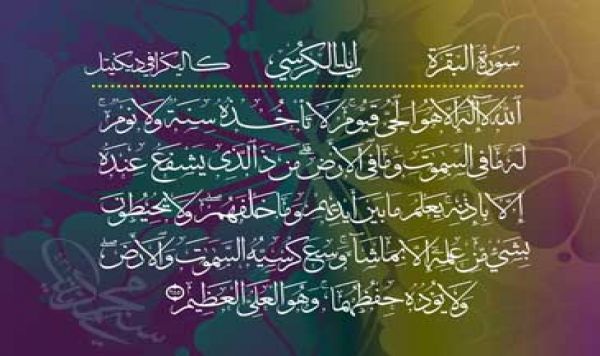 سورة البقرة آية الكرسي كاليكرافي ديكيتل
الله لا إله إلا هو الحي قيوم لا تأخذه سنة ولا نوم
له ما في السموت وما في الأرض من ذ الذي يشفع عنده
إلا بإذنه يعلم ما بين أيديهم وما خلفهم ولا يحيطون
بشيء من علمه إلا بما شاء وسع كرسيه السموت والأرض
ولا يؤده حفظهما وهو العلي العظيم